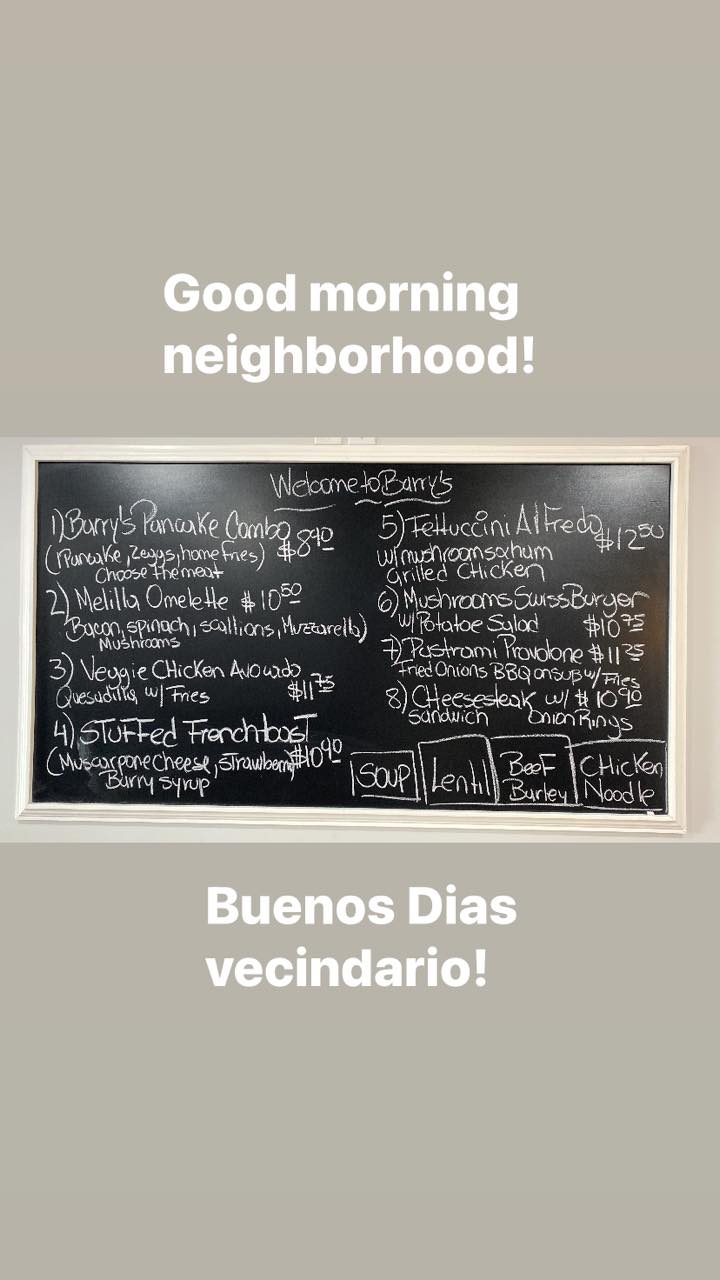 Good morning
neighborhood!
Welcome to Barry's
1) Barry's Pancake Combo $8.90
(Pancake, 2eggs, home fries)
Choose the meat
2) Melilla Omelette $10.50
Bacon, spinach, scallions, Muzzarella)
Mushrooms
3) Veggie Chicken Avocado
Quesadilla w/ Fries $11.75
4) Stuffed Frenchtoast
(Muscarpone cheese, strawberry $10.90
Barry Syrup
5) Fettuccini Alfredo $12.50
w/mushrooms
Grilled Chicken
6) Mushrooms Swiss Burger
w/Potatoe Salad $10.75
7) Pastrami Provolone $11.25
Fried Onions BBQ on sub w/ Fries
8) Cheesesteak w/ $10.90
Sandwich Onion Rings
Soup
Lentil
Beef
Barley
Chicken
Noodle
Buenos Dias
vecindario!